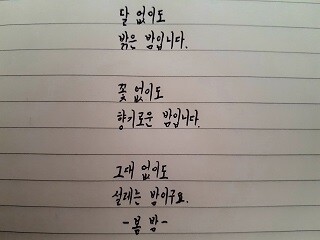 달 없이도
밝은 밤입니다.
꽃 없이도
향기로운 밤입니다.
그대 없이도
설레는 밤이구요.
-봄 밤-